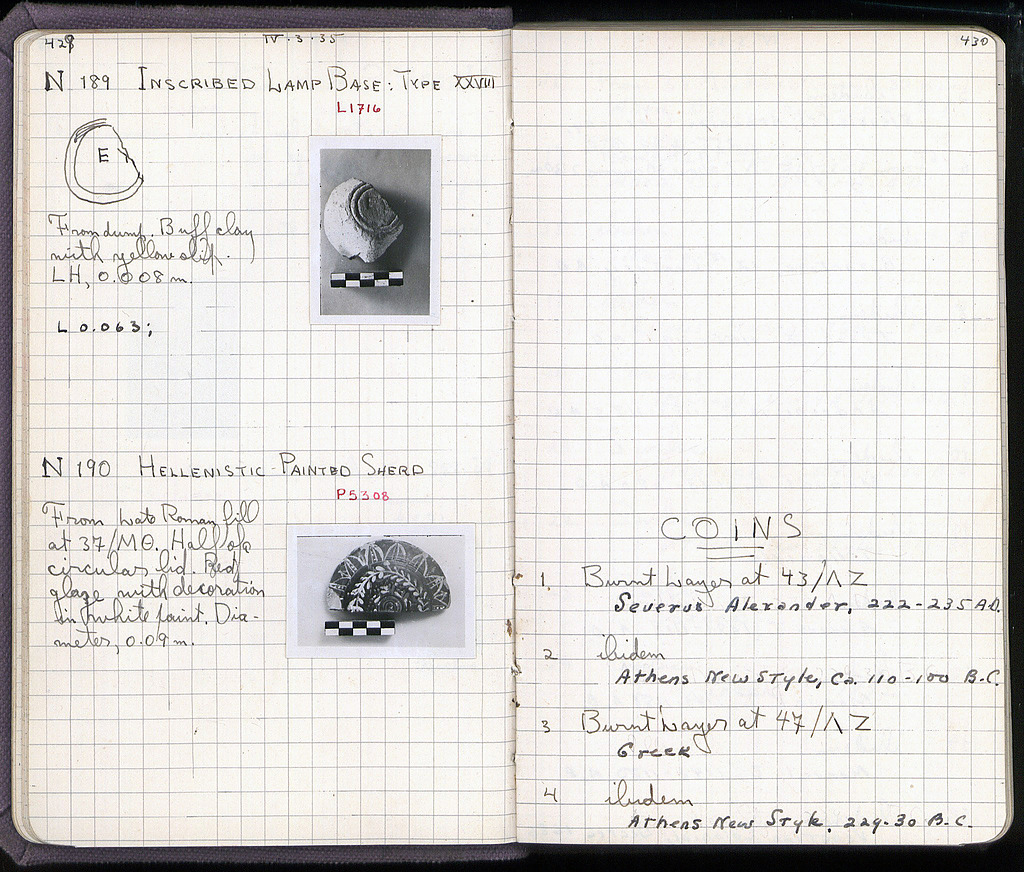 429
IV·3·35
N 189 INSCRIBED LAMP BASE: TYPE XXVIII
L1716
E
From dump. Buff clay
with yellow slip.
LH, 0.008 m.
L 0.063;
N 190 HELLENISTIC PAINTED SHERD
P5308
From Late Roman fill
at 37/ΜΘ. Half of a
circular lid. Red
glaze with decoration
in white paint. Dia-
meter, 0.09 m.
430
COINS
1. Burnt Layer at 43/ΛΖ
Severus Alexander, 222-235 A.D.
2 ibidem
Athens New Style, Ca. 110-100 B.C.
3 Burnt Layer at 47/ΛΖ
Greek
4 ibidem
Athens New Style, 229-30 B.C.